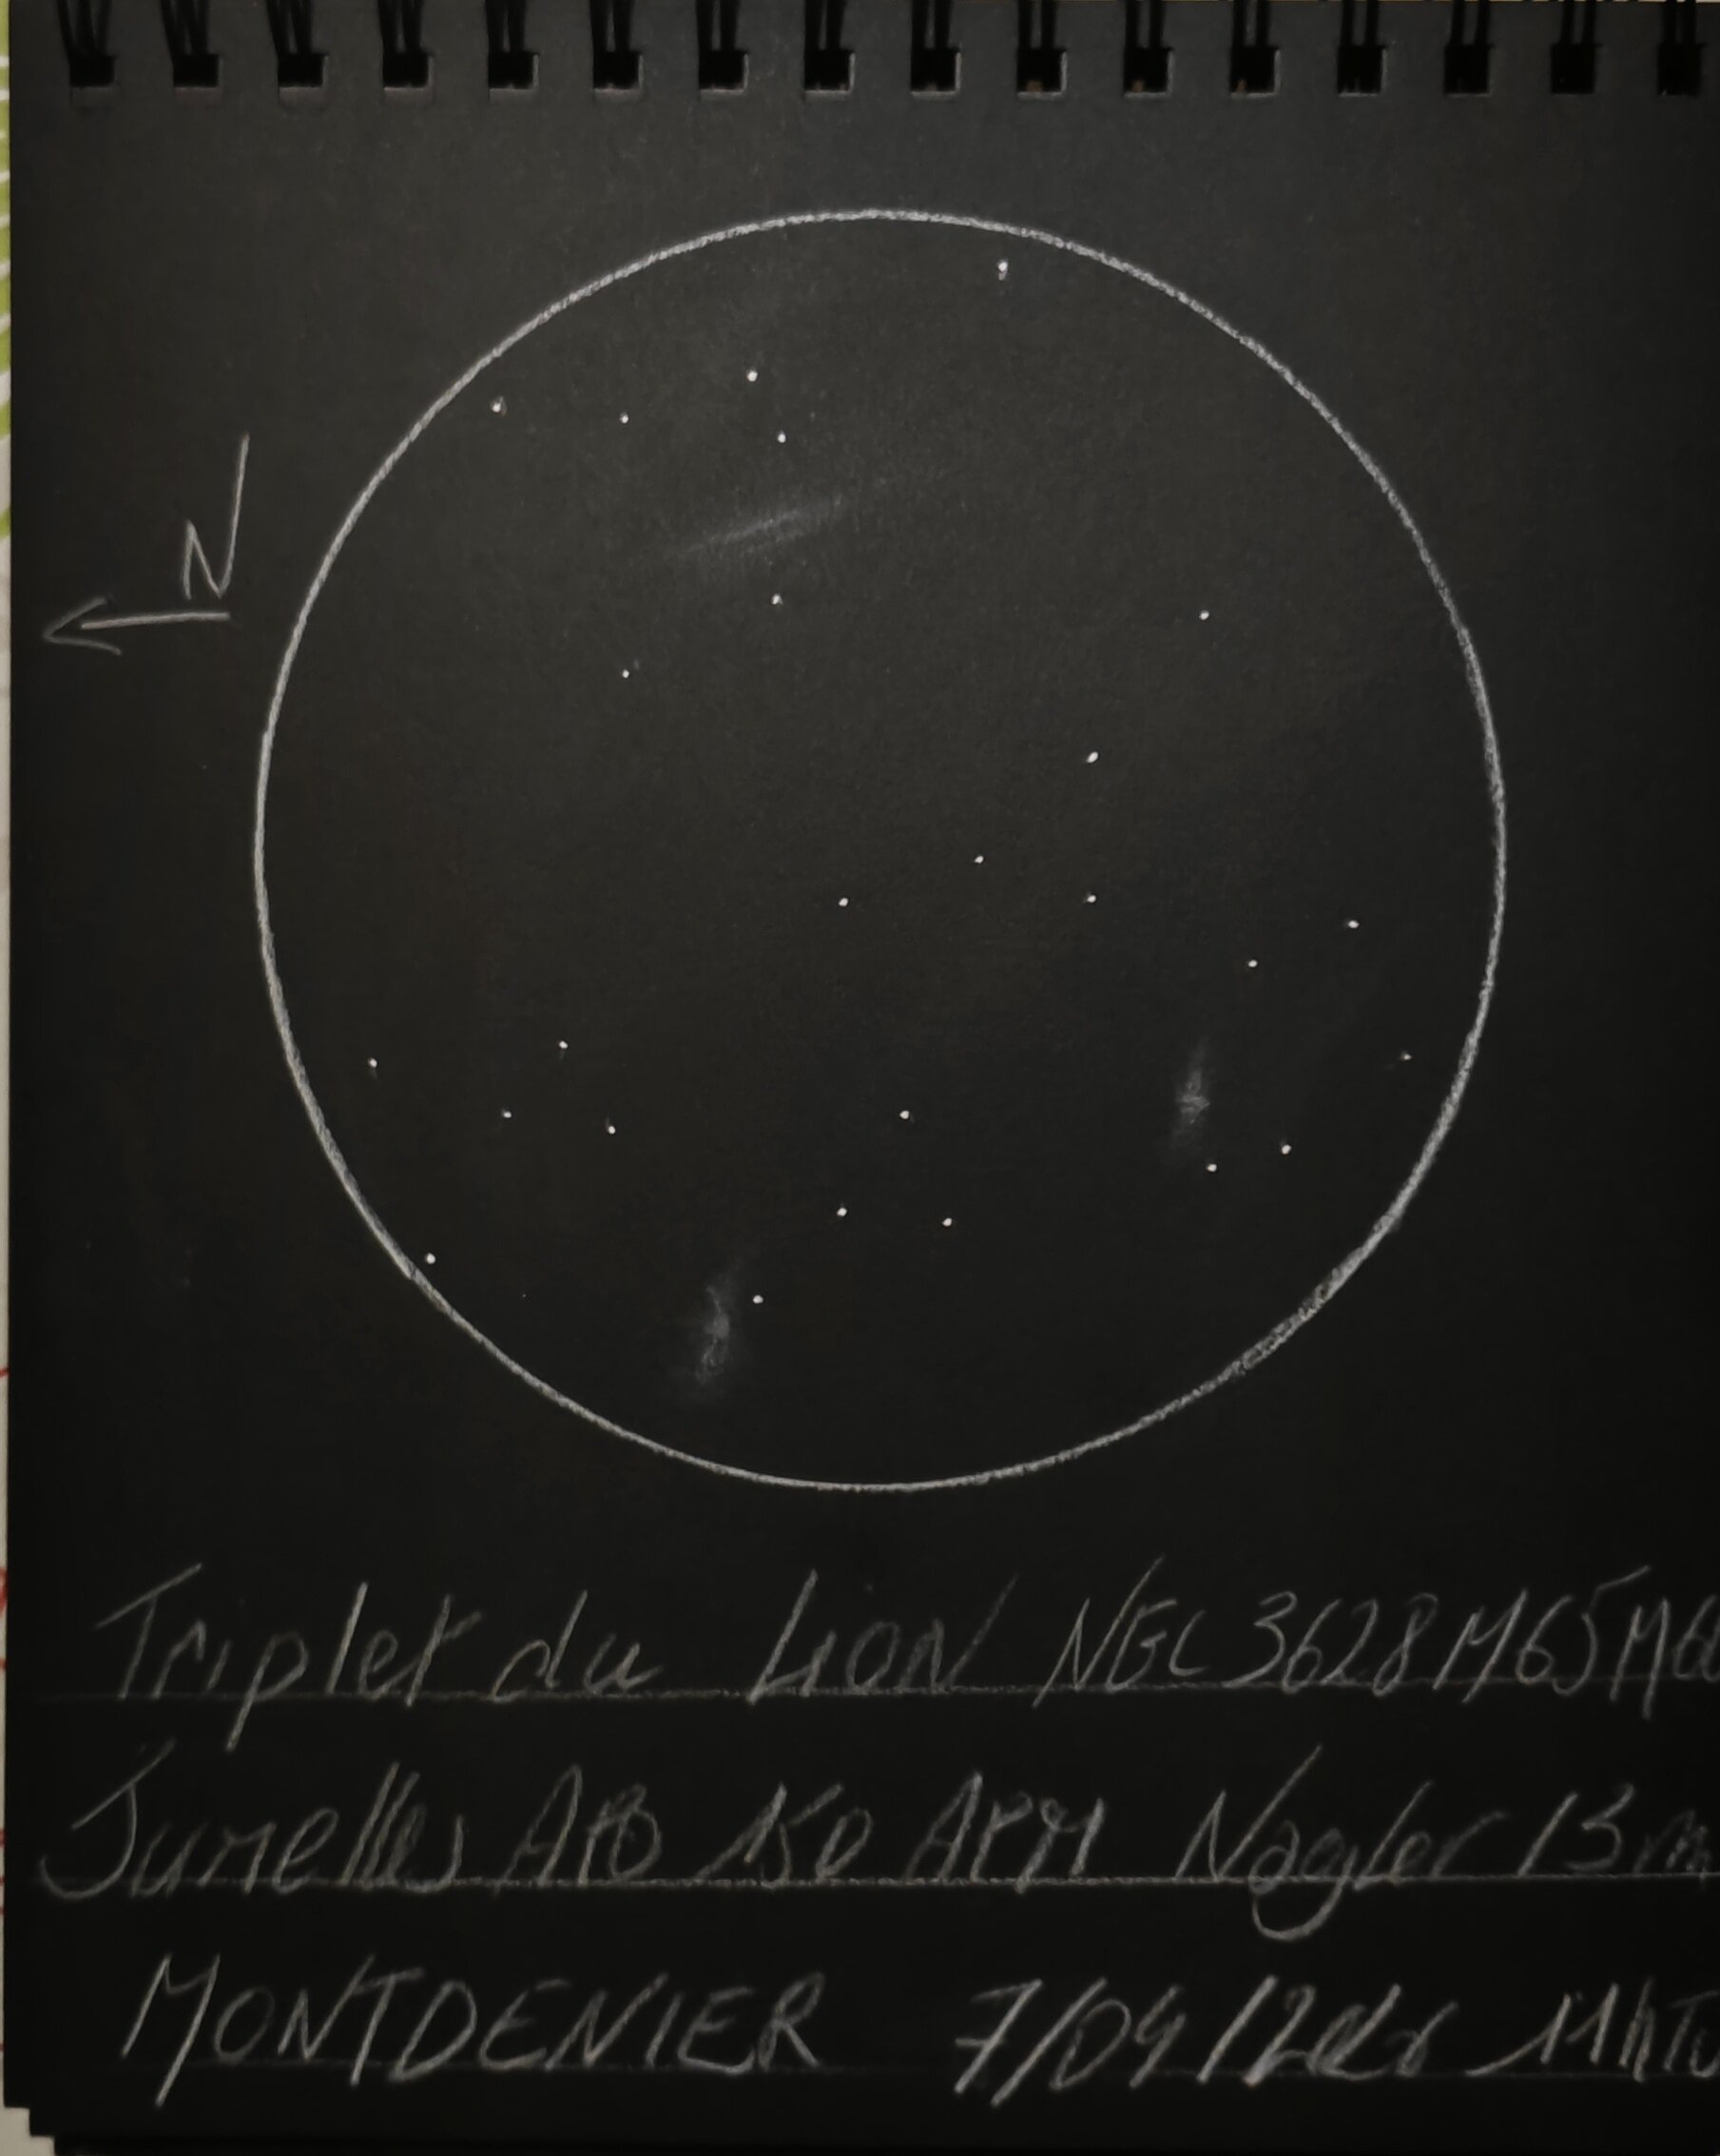 N
Triplet du LION NGC 3628 M65 M6
Jumelles APO 150 APM Nagler 13 m
MONTDENIER 7/04/ 11hTU